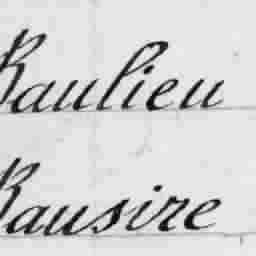 Baulieu
Bausire